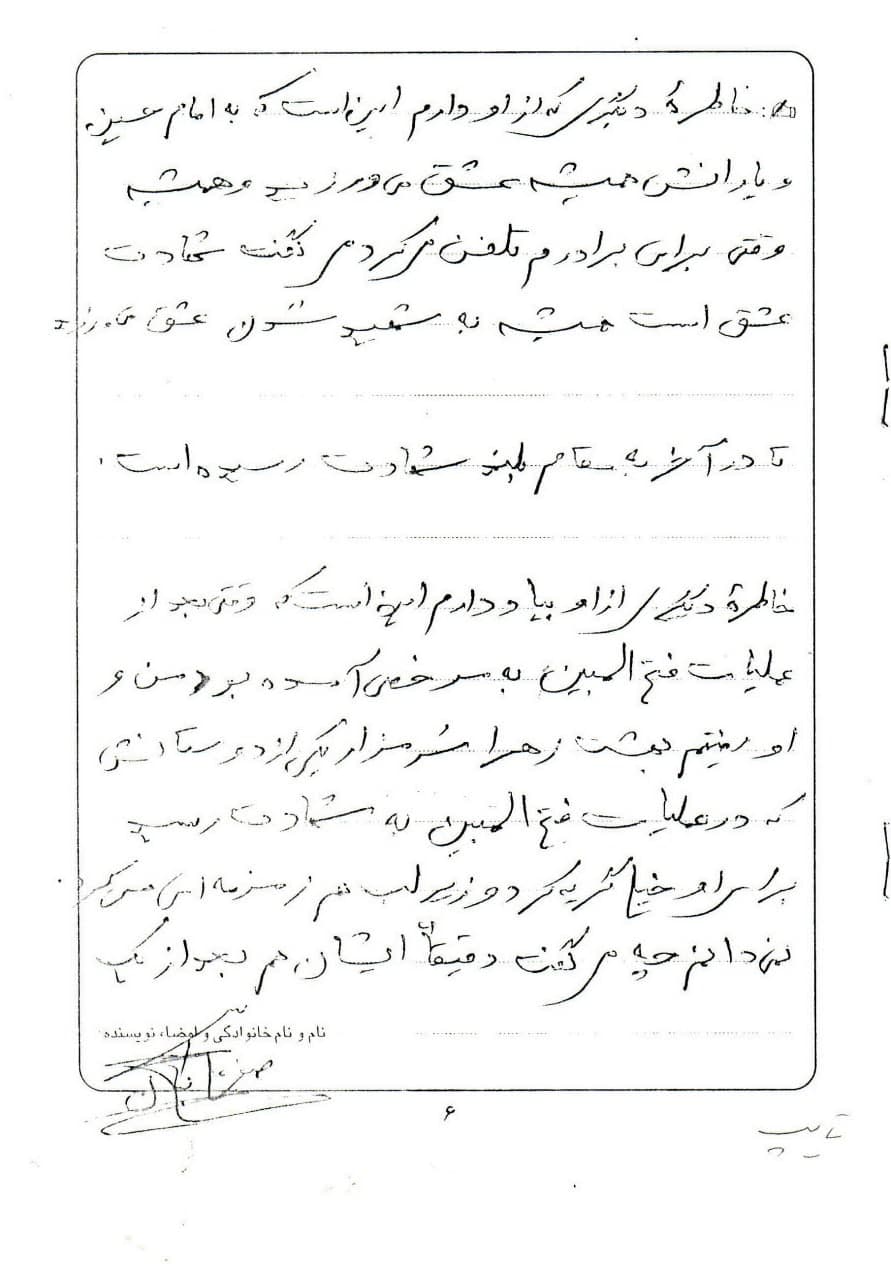 خاطرهٔ دیگری که از او دارم این است که به امام حسین
و یارانش همیشه عشق می‌ورزید و همیشه
وقتی برای برادرم تلفن می‌کرد می گفت شهادت
عشق است همیشه به شهید شدن عشق می‌ورزید
تا در آخر به مقام بلند شهادت رسیده است.
خاطرهٔ دیگری از او بیاد دارم این است که وقتی بعد از
عملیات فتح المبین به مرخصی آمده بود من و
او رفتیم بهشت زهرا سر مزار یکی از دوستانش
که در عملیات فتح المبین به شهادت رسید
برای او خیلی گریه کرد و زیر لب هم زمزمه ای می کرد.
نمی دانم چه می گفت دقیقاً ایشان هم بعد از یک
نام و نام خانوادگی و امضاء نویسنده:
۶
تایپ